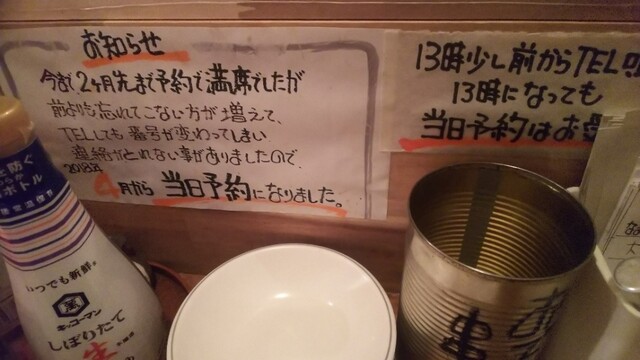 お知らせ
今まで2ヶ月先まで予約で満席でしたが
前よりも忘れてこない方が増えて、
TELしても番号が変わってしまい
連絡がとれない事がありましたので
2018年
4月から当日予約になりました。
13時少し前からTEL
13時になっても
当日予約はお
を防ぐ
ボトル
いつでも新鮮®
キッコーマン
しぼりたて
生